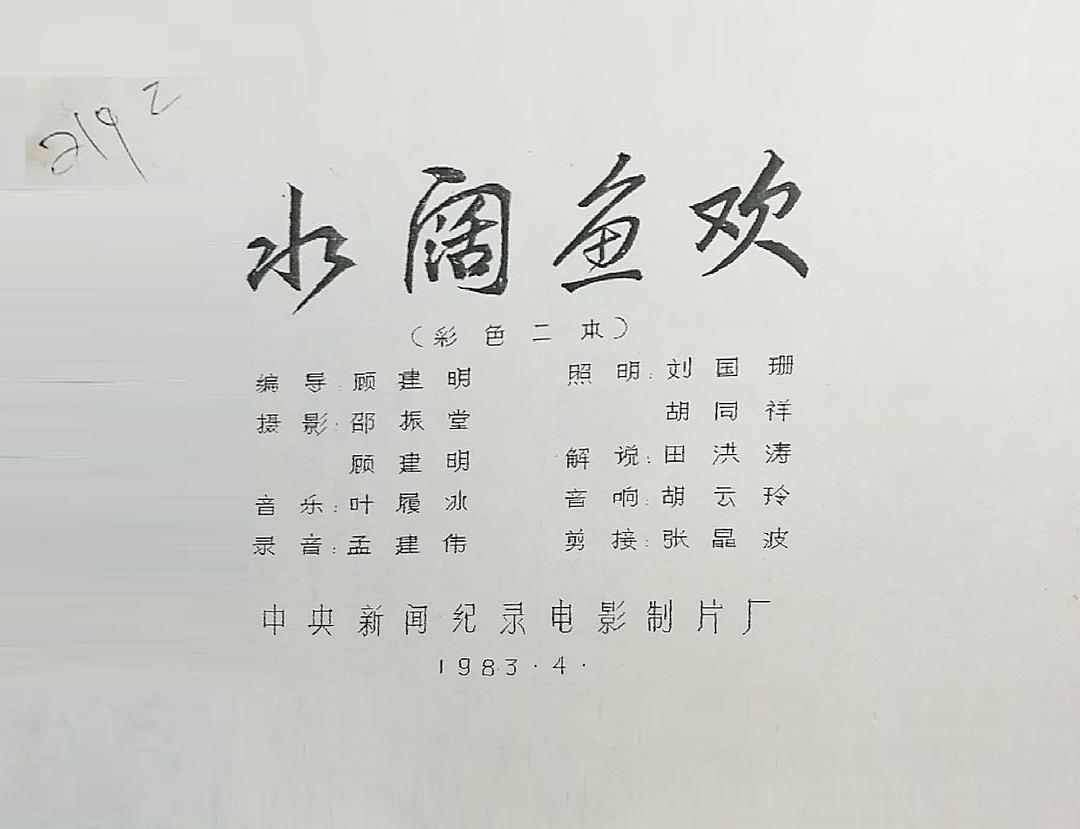 219 2
水阔鱼欢
（彩色二本）
编导：顾建明 照明：刘国珊
摄影：邵振堂 胡同祥
顾建明 解说：田洪涛
音乐：叶履冰 音响：胡云玲
录音：孟建伟 剪接：张晶波
中央新闻纪录电影制片厂
1983·4·